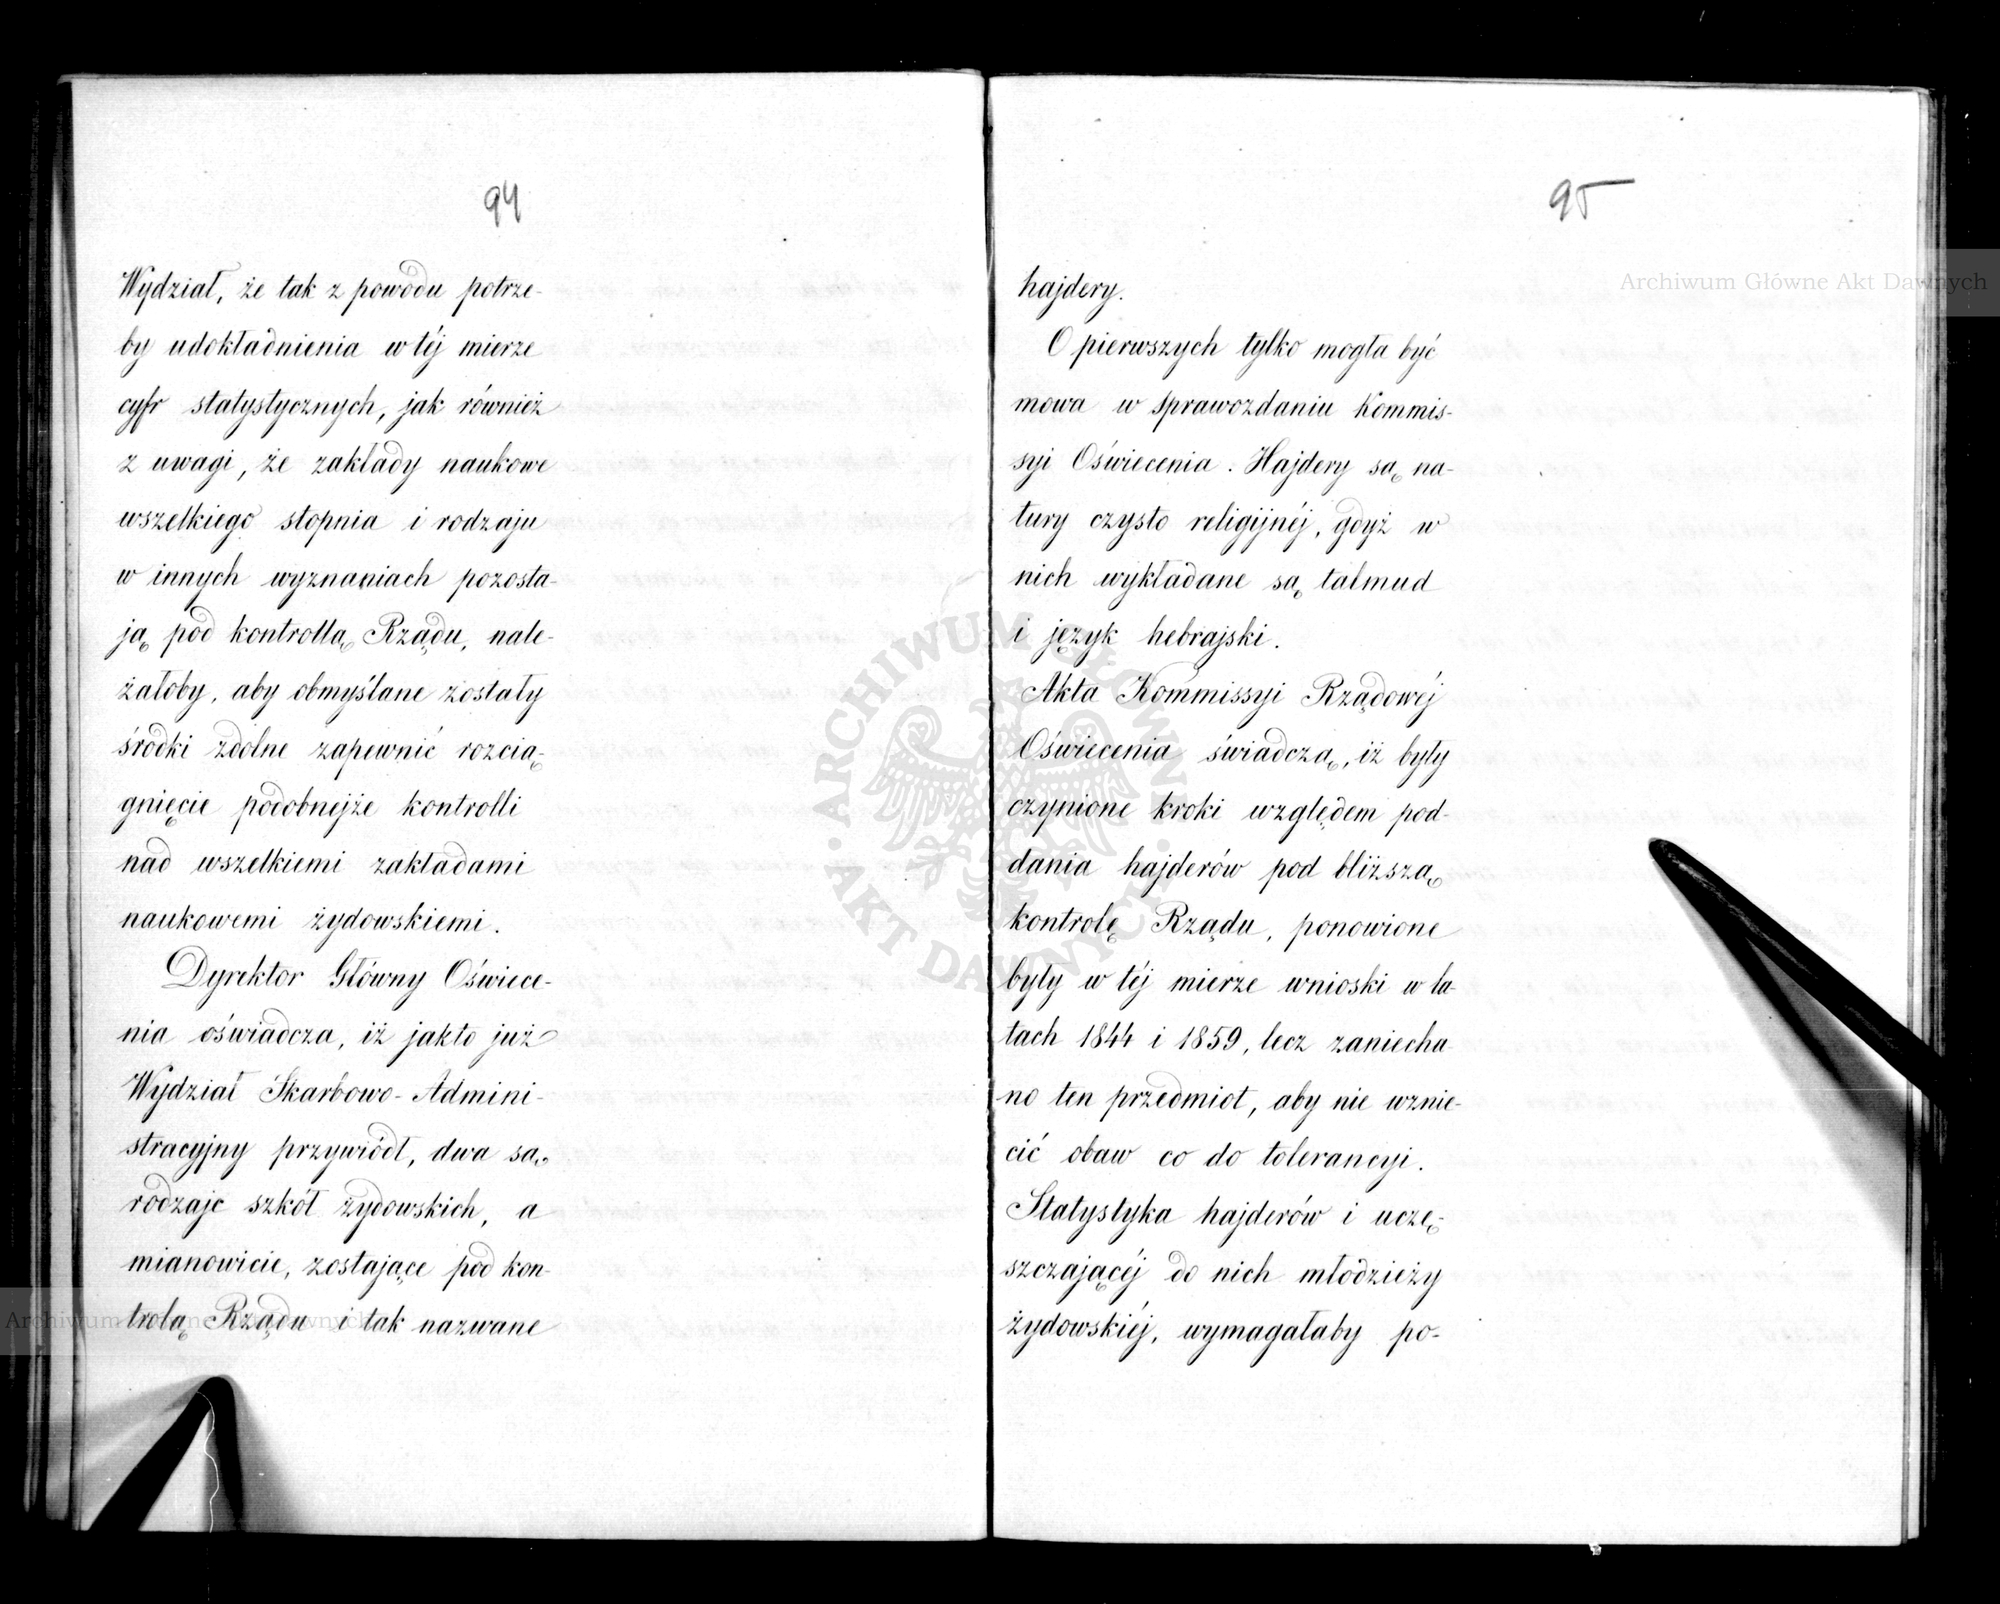 94
Wydział, że tak z powodu potrze-
by udokładnienia w téj mierze
cyfr statystycznych, jak również
z uwagi, że zakłady naukowe
wszelkiego stopnia i rodzaju
w innych wyznaniach pozosta-
ją pod kontrollą Rządu, nale-
żałoby, aby obmyślane zostały
środki zdolne zapewnić rozcią-
gnięcie podobnejże kontrolli
nad wszelkiemi zakładami
naukowemi żydowskiemi.
Dyrektor Główny Oświece-
nia oświadcza, iż jakto już
Wydział Skarbowo-Admini-
stracyjny przywiódł, dwa są
rodzaje szkół żydowskich, a
mianowicie, zostające pod kon-
trolą Rządu i tak nazwane
95
hajdery.
O pierwszych tylko mogła być
mowa w sprawozdaniu Kommis-
syi Oświecenia. Hajdery są na-
tury czysto religijnéj, gdyż w
nich wykładane są talmud
i język hebrajski.
Akta Kommissyi Rządowéj
Oświecenia świadczą, iż były
czynione kroki względem pod-
dania hajderów pod bliższą
kontrolę Rządu, ponowione
były w téj mierze wnioski w la-
tach 1844 i 1859, lecz zaniecha-
no ten przedmiot, aby nie wznie-
cić obaw co do tolerancyi.
Statystyka hajderów i uczę-
szczającéj do nich młodzieży
żydowskiéj, wymagałaby po-
Archiwum Główne Akt Dawnych
Archiwum Główne Akt Dawnych
ARCHIWUM GŁÓWNE AKT DAWNYCH